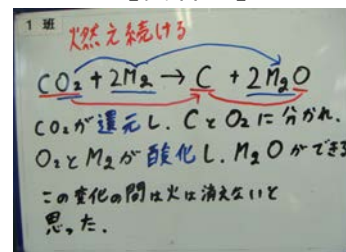 1 班
燃え続ける
CO₂+2Mg→C+2MgO
CO₂が還元し.CとO₂に分かれ.
O₂とMgが酸化し.MgOができる
この変化の間は火は消えないと
思った.